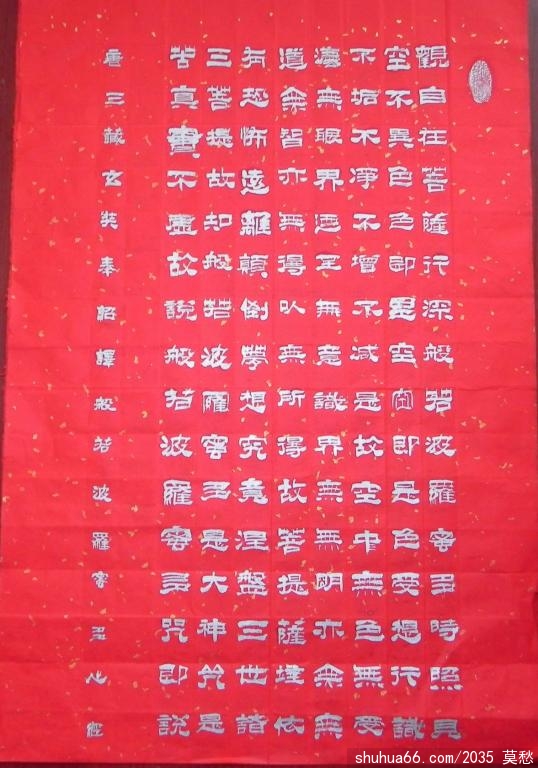 觀自在菩薩行深般若波羅蜜多時照見
空不異色色即是空空即是色受想行識
不垢不淨不增不減是故空中無色無受
灋無眼界迺至無意識界無無明亦無無
道無智亦無得以無所得故菩提薩埵依
有恐怖遠離顛倒夢想究竟涅盤三世諸
三菩提故知般若波羅蜜多是大神咒是
苦真實不虛故說般若波羅蜜多咒即說
唐三藏玄奘奉詔譯般若波羅蜜多心經
shuhua66.com/2035 莫愁